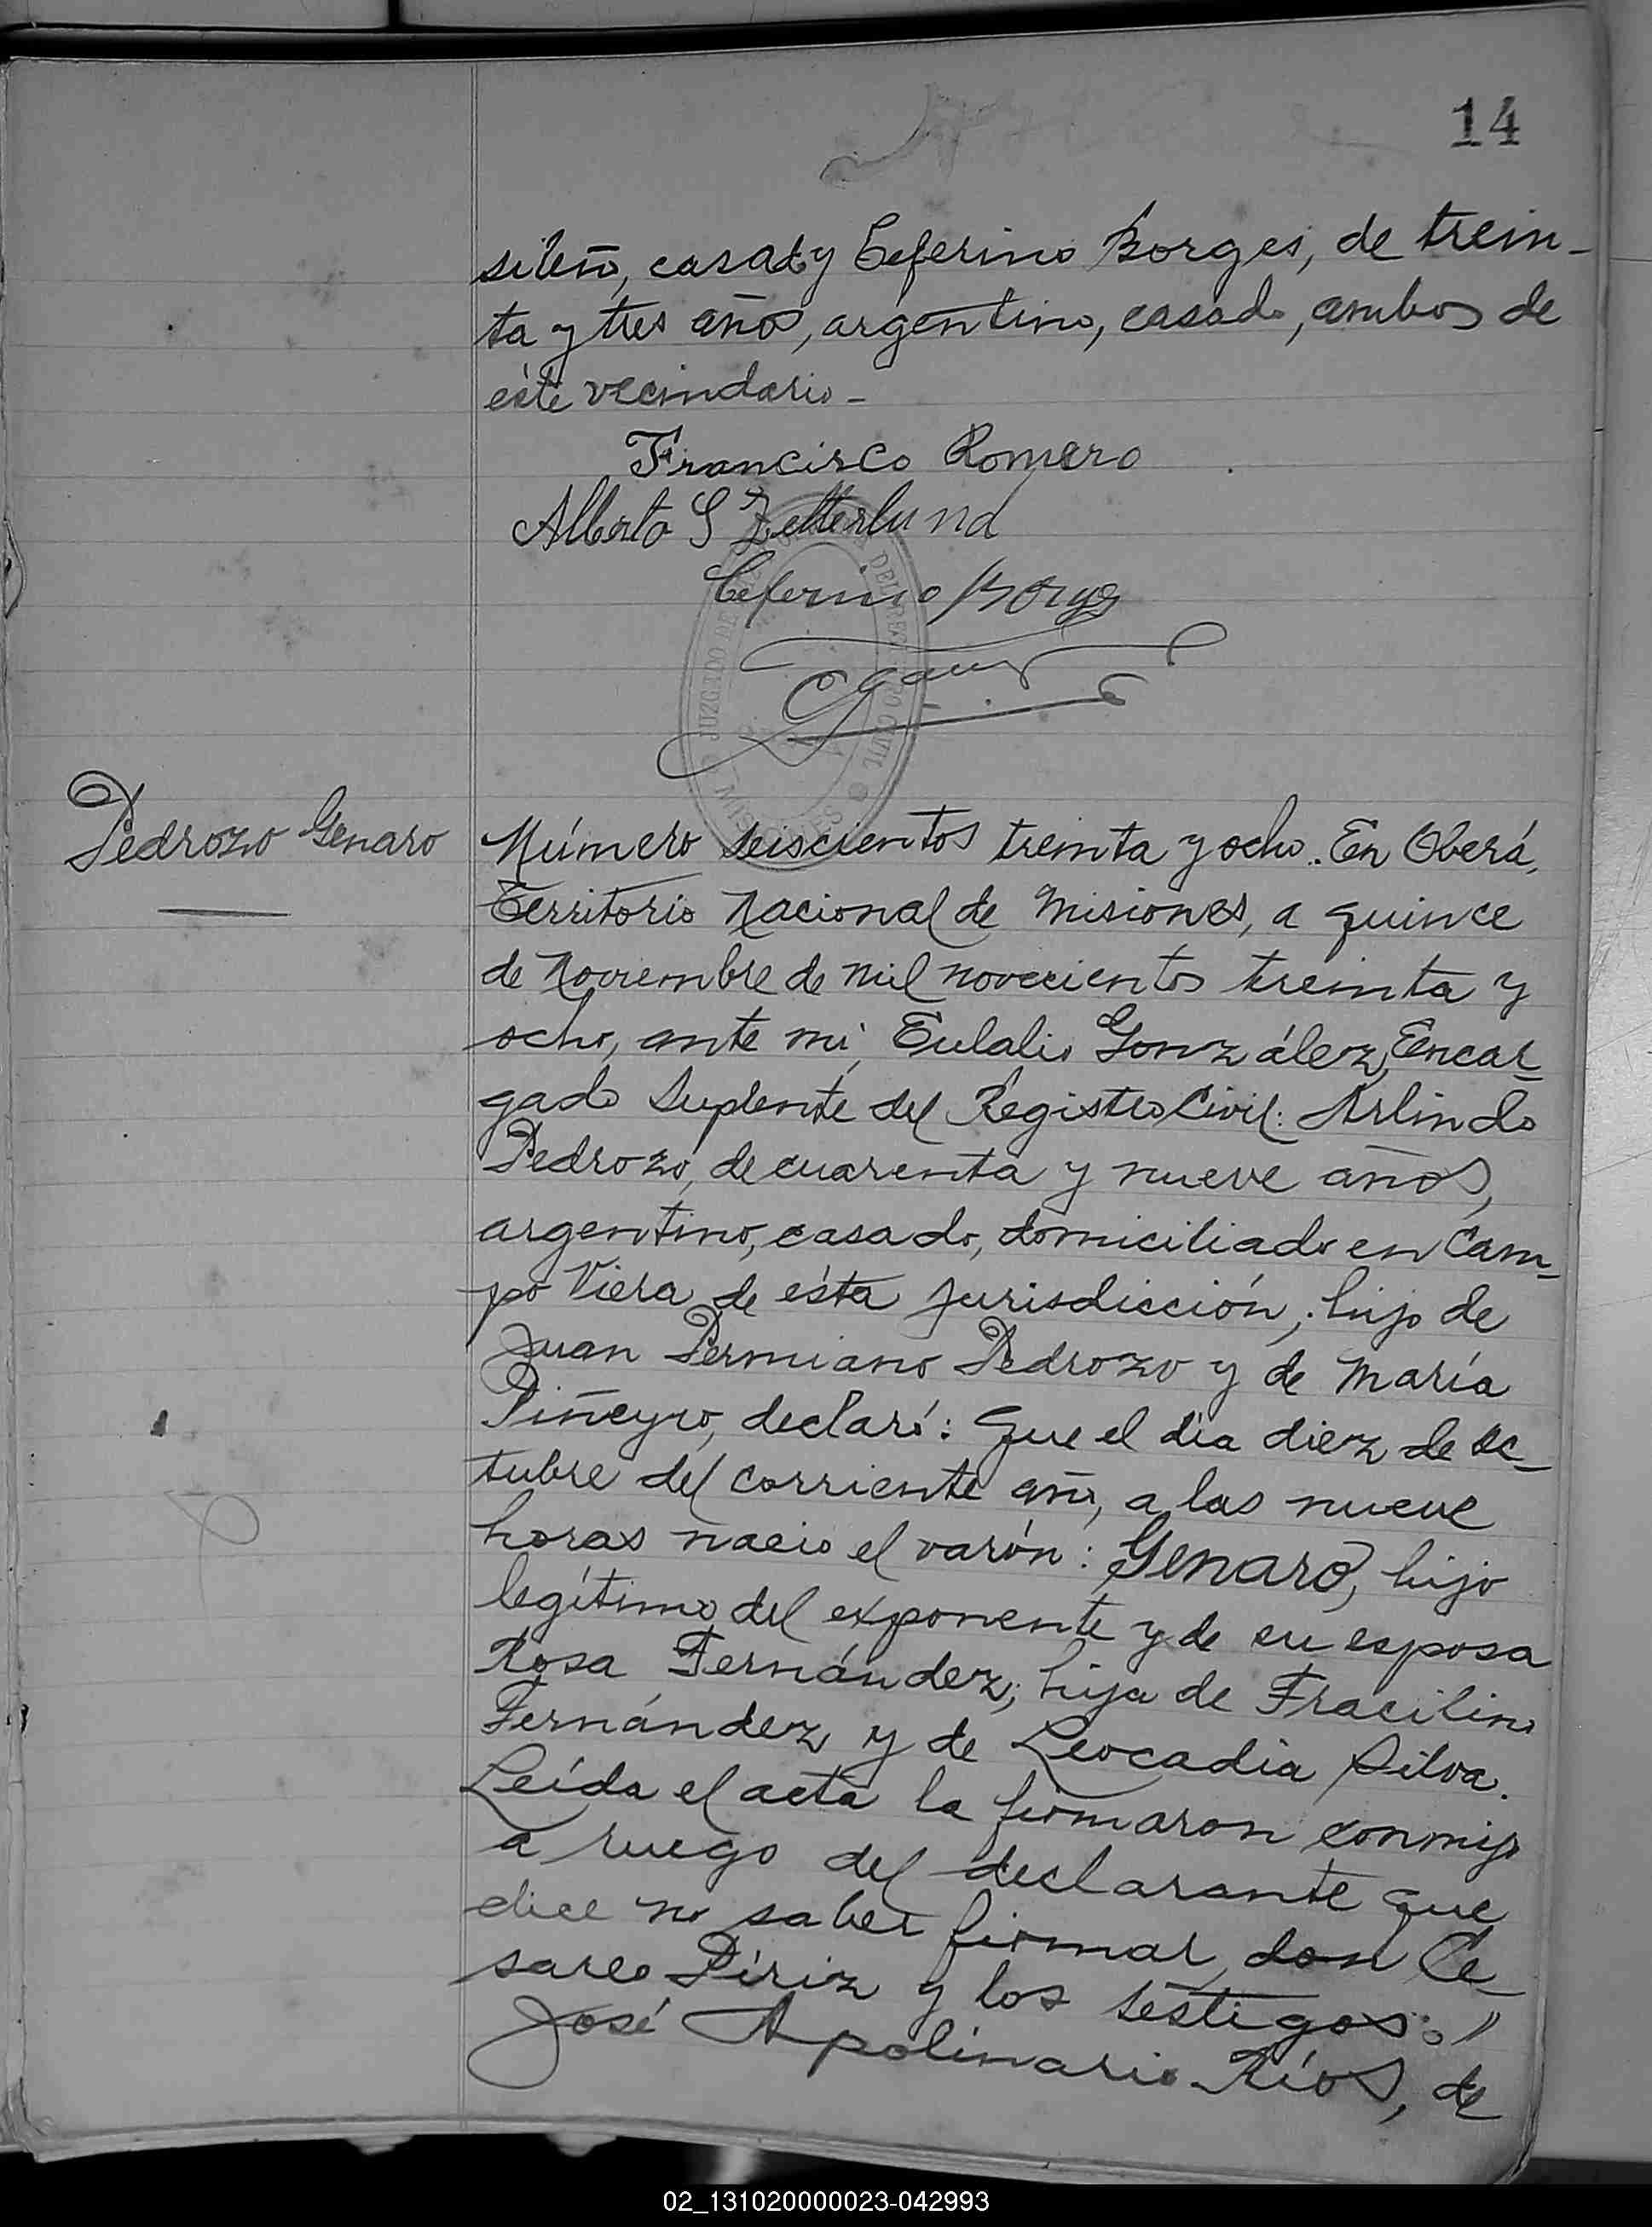 14
sileño, casado y Ceferino Borges, de trein-
ta y tres años, argentino, casado, ambos de
éste vecindario-
Francisco Romero
Alberto S Zetterlund
Ceferino Borges
JUZGADO DE CIVIL MISIONES
Pedrozo Genaro
Número seiscientos treinta y ocho. En Oberá,
Territorio Nacional de Misiones, a quince
de Noviembre de mil novecientos treinta y
ocho, ante mi, Eulalio González, Encar-
gado Suplente del Registro Civil: Arlindo
Pedrozo, de cuarenta y nueve años,
argentino, casado, domiciliado en Cam-
po Viera de ésta jurisdicción, hijo de
Juan Permiano Pedrozo y de María
Piñeyro, declaró: Que el día diez de oc-
tubre del corriente año, a las nueve
horas nació el varón: Genaro, hijo
legítimo del exponente y de su esposa
Rosa Fernández; hija de Fracilino
Fernández y de Leocadia Silva.
Leída el acta la firmaron conmigo
a ruego del declarante que
dice no saber firmar, don Ce-
sareo Píriz y los testigos:
José Apolinario Ríos, de
02_131020000023-042993